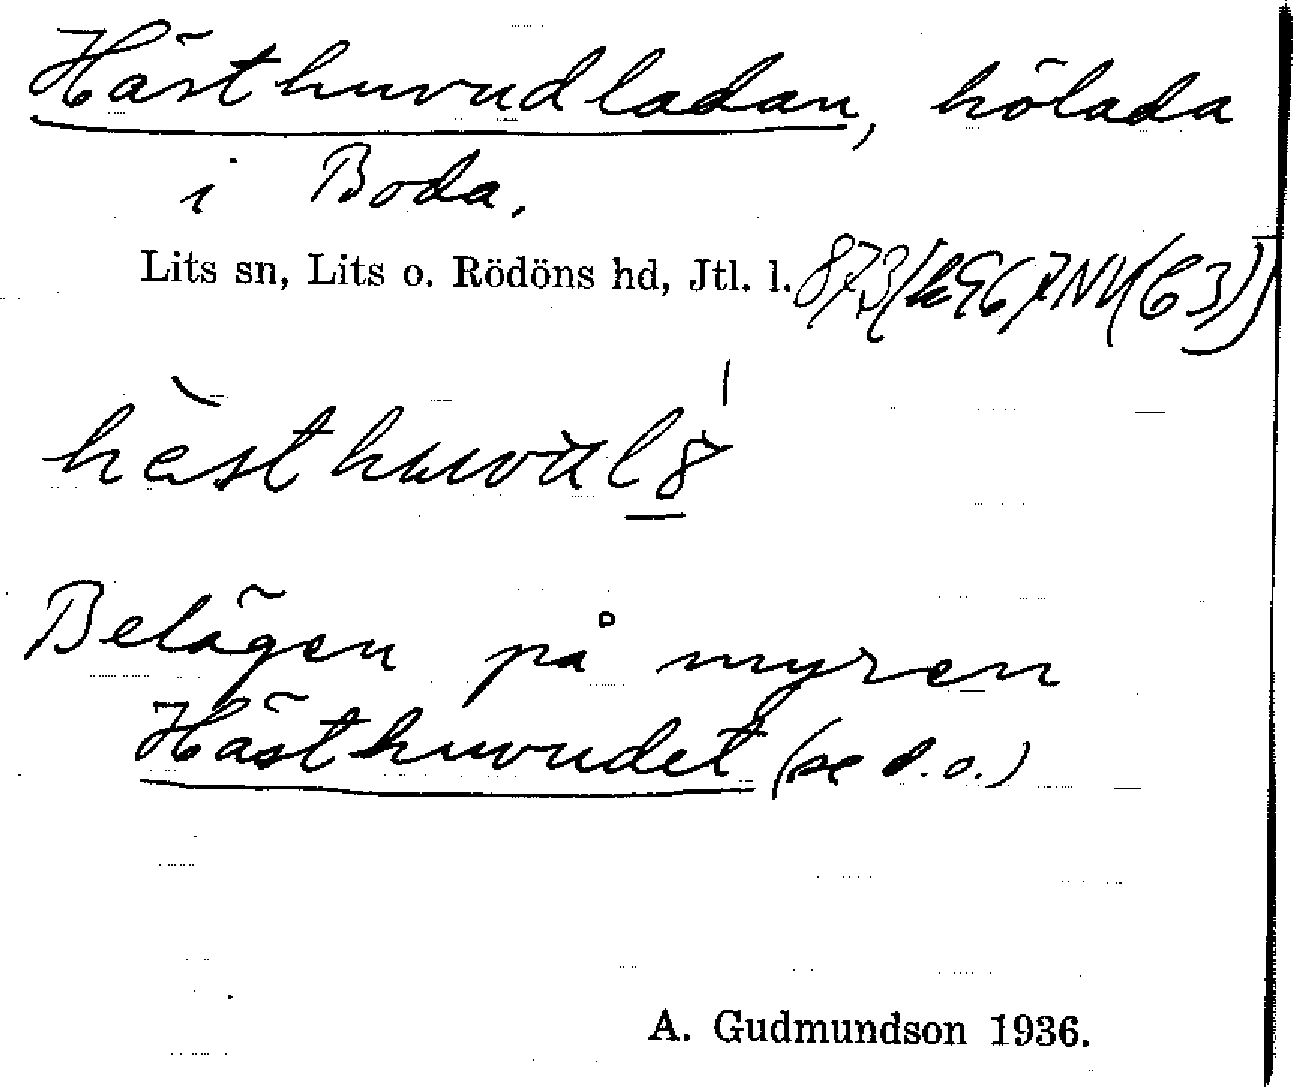 Hästhuvudladan, hölada
i Boda.
Lits sn, Lits o. Rödöns hd, Jtl. l.
Belägen på myren
Hästhuvudet (se d.o.)
A. Gudmundson 1936.